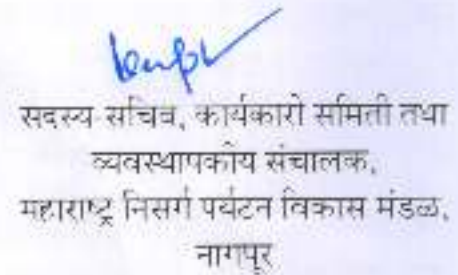 सदस्य-सचिव, कार्यकारी समिती तथा
व्यवस्थापकीय संचालक,
महाराष्ट्र निसर्ग पर्यटन विकास मंडळ,
नागपूर